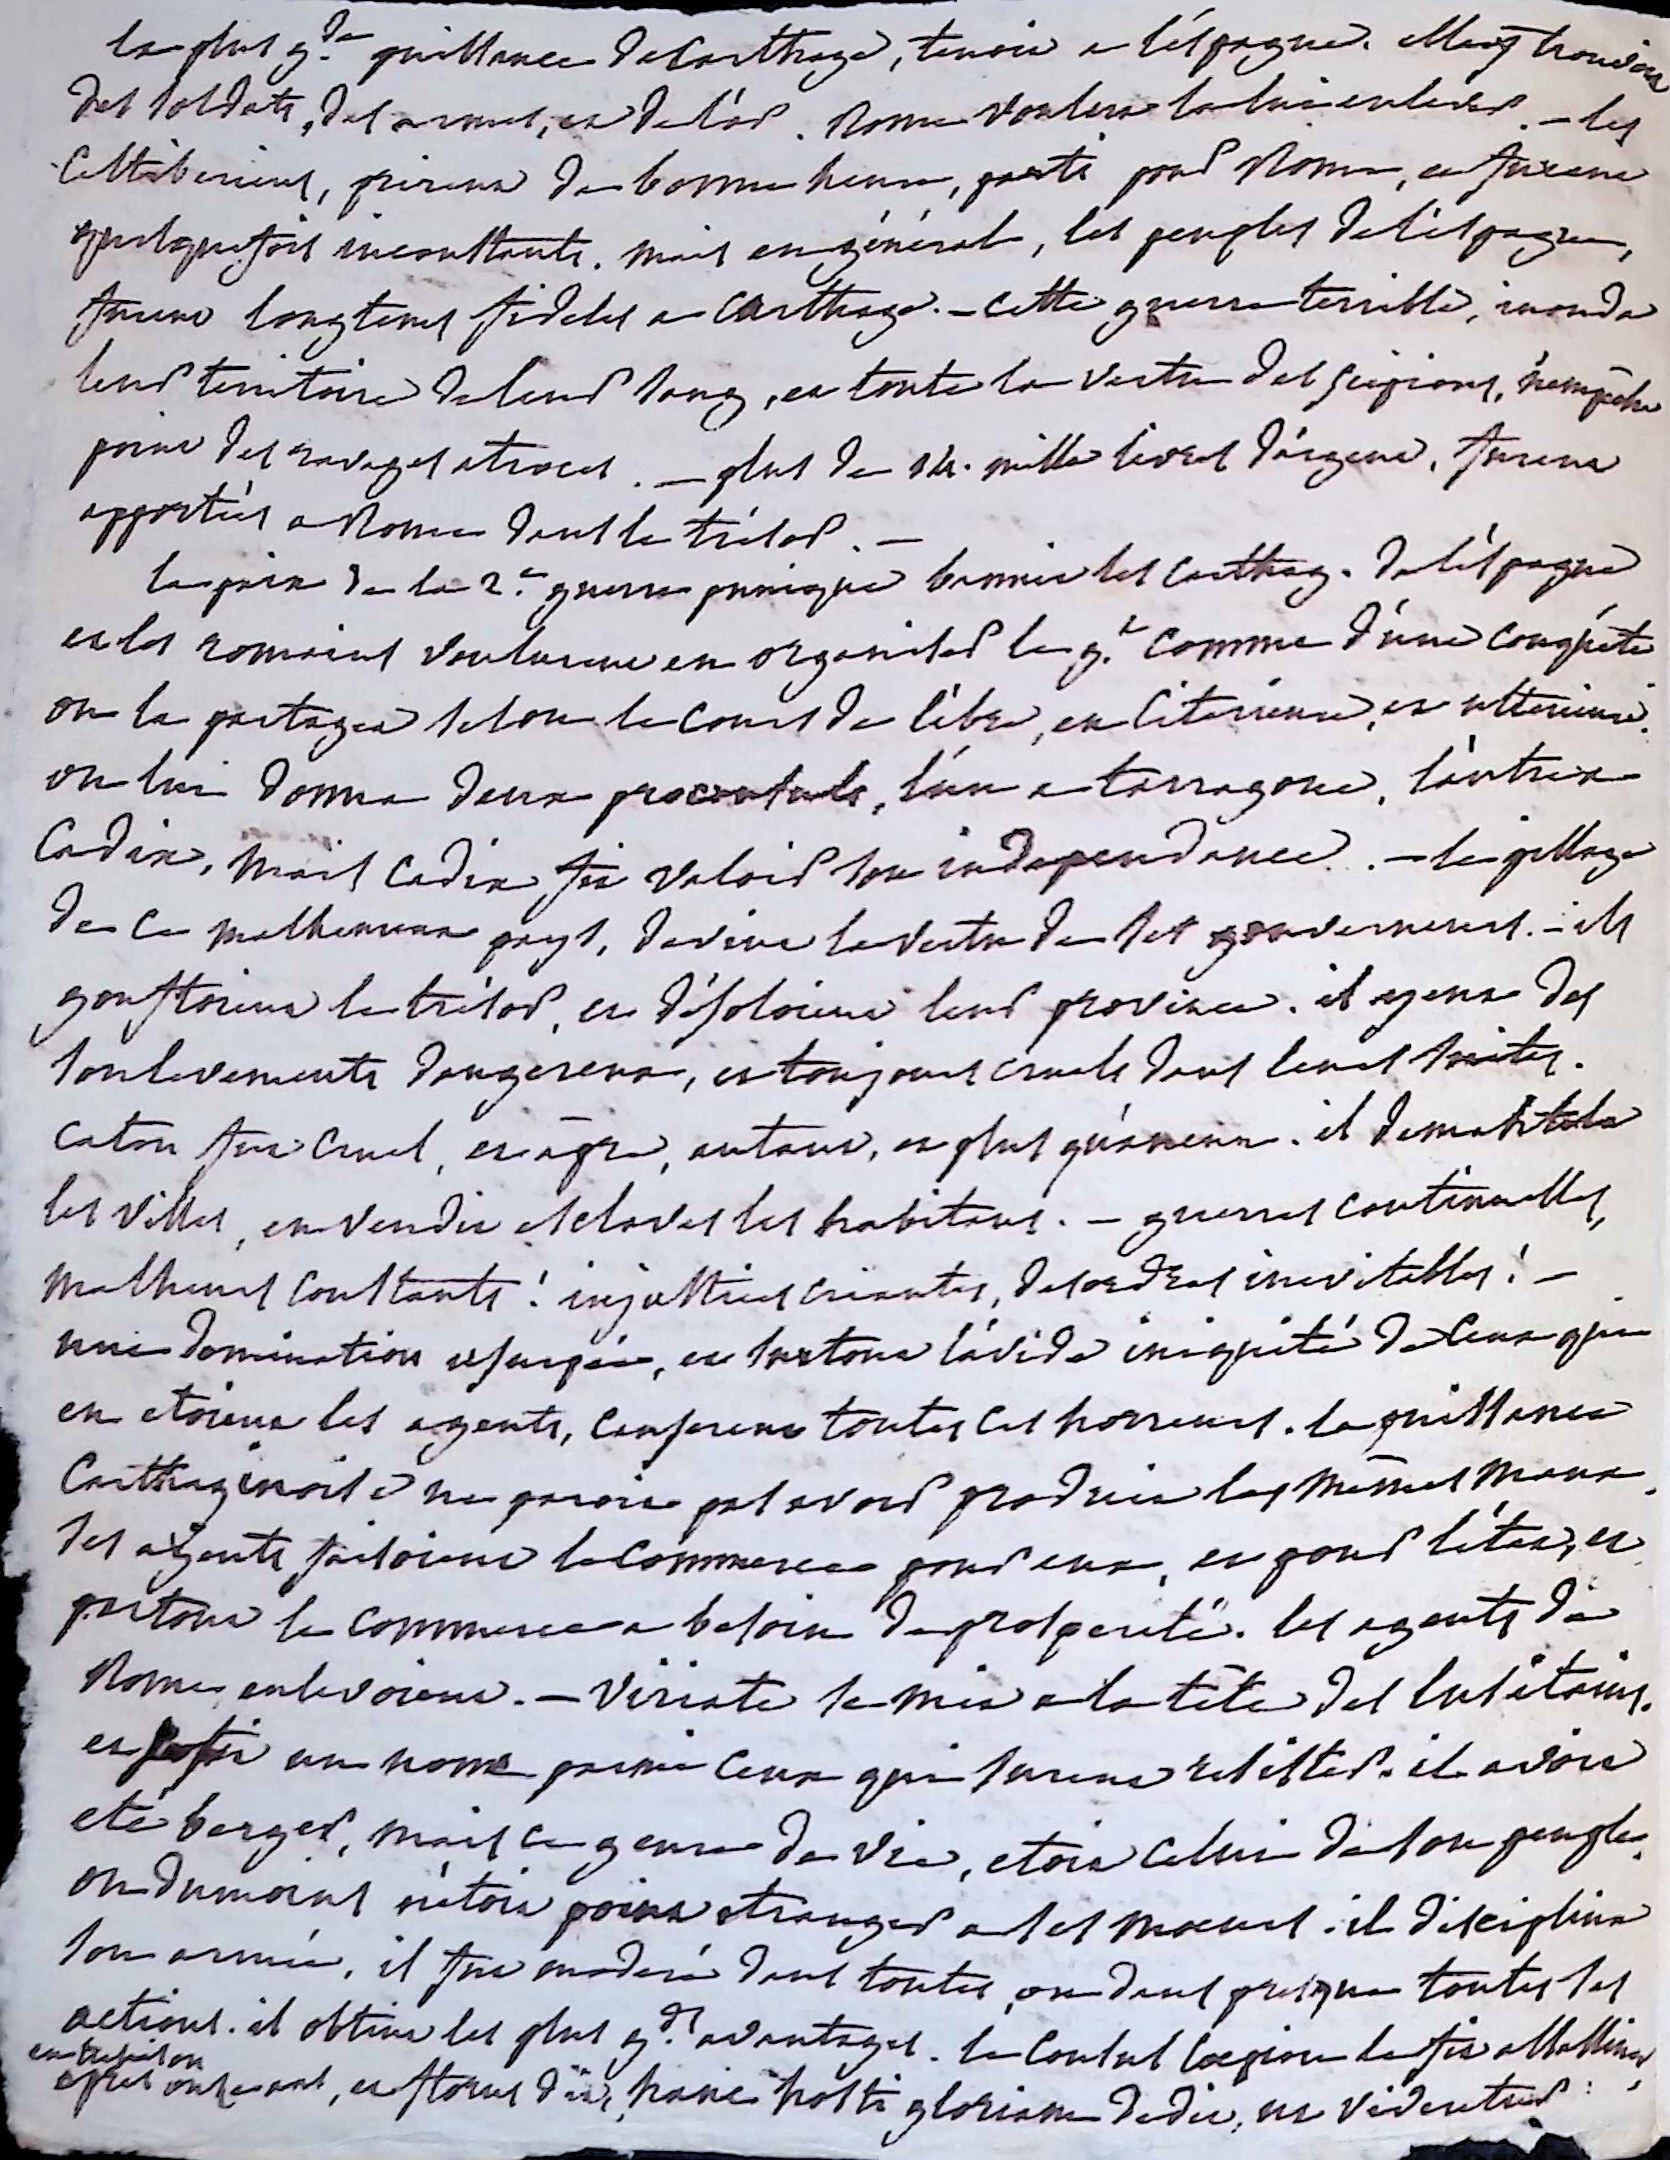 la plus g.de puissance de Carthage, tenoit a l'éspagne. elle y trouvoit
des soldats, des armes, et de l'or. Rome voulut la lui enlever. – les
Celtiberiens, prirent de bonne heure, parti pour Rome, et furent
quelquefois inconstants. mais en général, les peuples de l'éspagne,
furent longtems fideles a Carthage. – cette guerre terrible, inonda
leur territoire de leur sang, et toute la vertu des scipions, n'empécha
point des ravages atroces. – plus de mille livres d'argent, furent
apportées a Rome dans le trésor. –
la paix de la 2.e guerre punique bannit les Carthag. de l'éspagne
et les romains voulurent en organiser le g.t comme d'une conquéte
on la partagea selon le cours de l'ébre, en Citerieure, et ulterieure.
on lui donna deux proconsuls, l'un a tarragone, l'autre a
Cadix, mais Cadix fit valoir son indépendance. – le pillage
de ce malheureux pays, devint la vertu de ses gouverneurs. – ils
gonfloient le trésor, et désoloient leur province. il y eut des
soulevements dangereux, et toujours cruels dans leurs suites.
Caton fut cruel, et apre, autant, et plus qu'aucun. il demantela
les villes, en vendit esclaves les habitans. – guerres continuelles,
malheurs constants! injustices criantes, desordres inevitables! –
une domination usurpée, et surtout l'avide iniquité de ceux qui
en etoient les agents, causerent toutes ces horreurs. la puissance
Carthaginoise ne paroit pas avoir produit les mêmes maux.
ses agents faisoient le commerce pour eux, et pour l'état, et
partout le commerce a besoin de prosperité. les agents de
Rome enlevoient. – Viriate se mit a la tête des lusitains.
et se fit un nom parmi ceux qui surent resister. il avoit
eté berger, mais ce genre de vie, etoit celui de son peuple,
ou du moins n'étoit point etranger a ses moeurs. il disciplina
son armée, il fut moderé dans toutes, ou dans presque toutes ses
actions. il obtint les plus g.ds avantages. le Consul Coepion le fit assassiner,
en trahison
après onze ans, et florus dit, hanc hosti gloriam dedit, ut videretur :